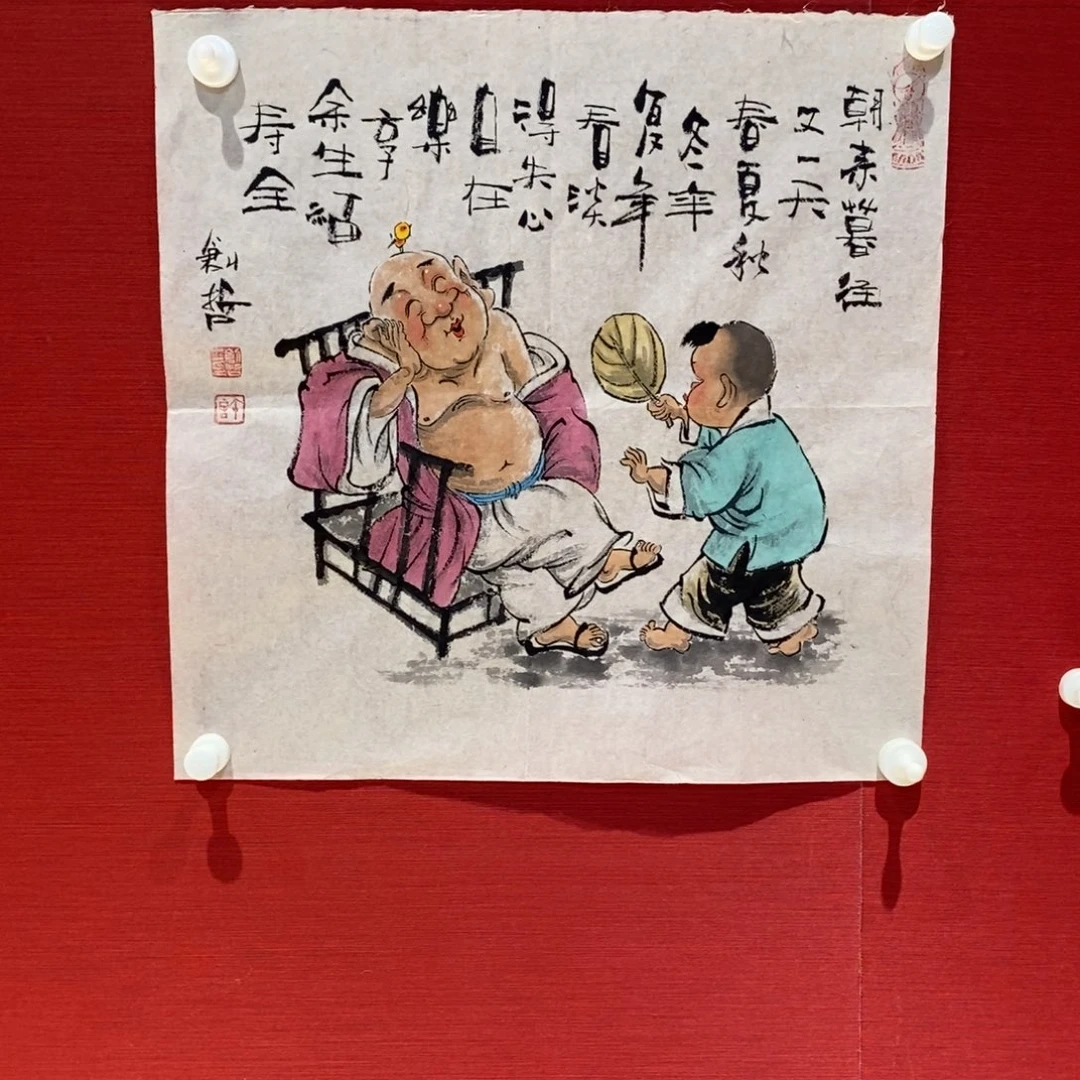 朝来暮往
又一天
春夏秋
冬年
复年
看淡
得失心
自在
樂
享
余生福
寿全